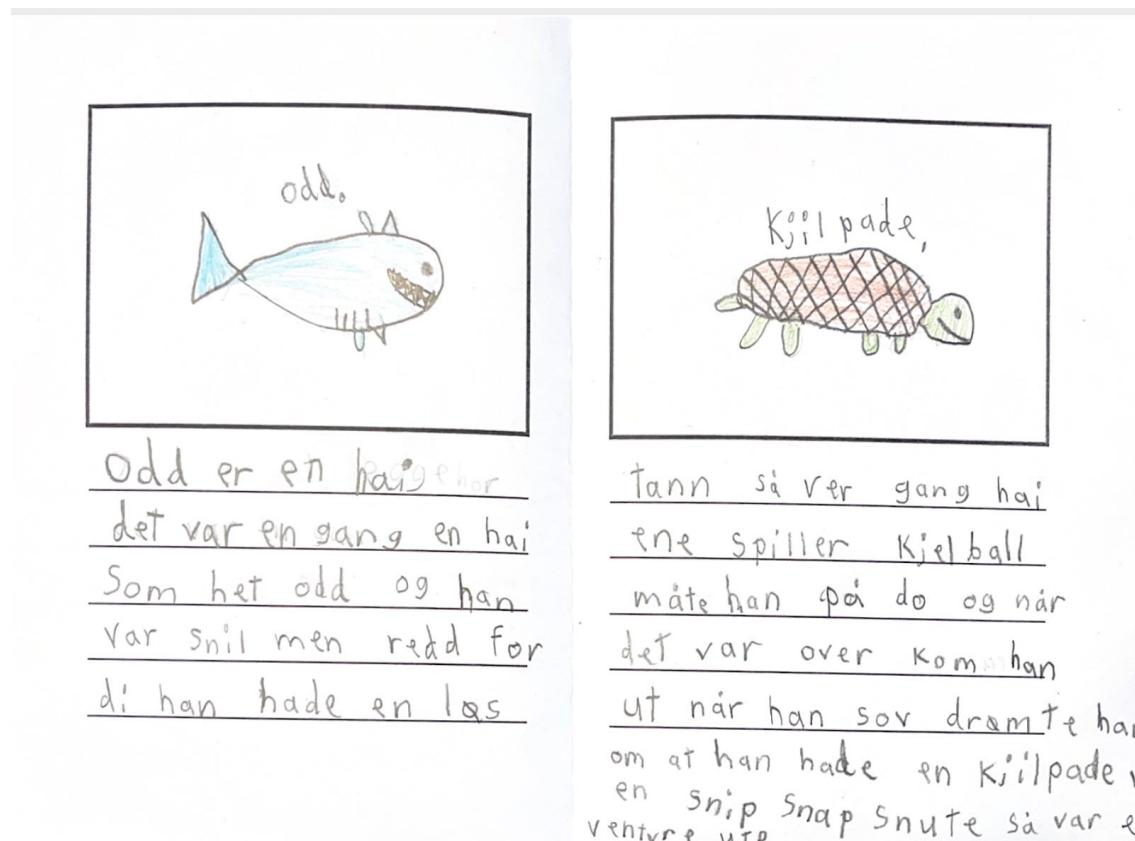 odd.
Odd er en hai
det var en gang en hai
Som het odd og han
var snil men redd for
di han hade en løs
Kjiilpade,
tann så ver gang hai
ene spiller Kjelball
måte han på do og når
det var over kom han
ut når han sov drømte
om at han hade en Kjiilpade
en snip snap snute så var
ventyre ute